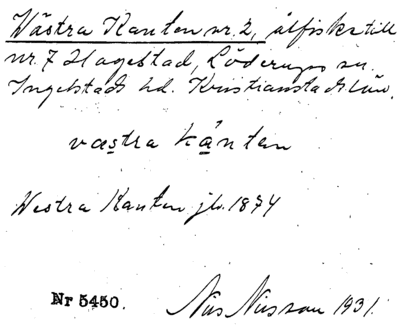 Västra Kanten nr. 2, ålfiske till
nr. 7 Hagestad, Löderups sn.
Ingelstads hd. Kristianstads län.
væstra kånten
Westra Kanten jb. 1874
Nr 5450. Nils Nilsson 1931.